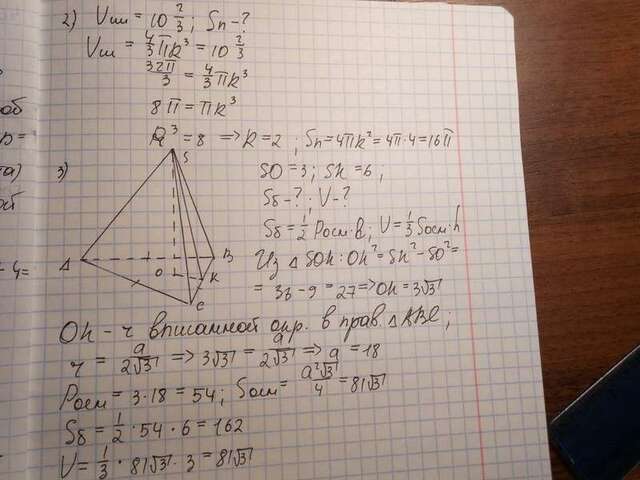 2) Vш = 10 2/3 ; Sп - ?
Vш = 4/3 πR³ = 10 2/3
32π/3 = 4/3 πR³
8π = πR³
R³ = 8 => R = 2 ; Sп = 4πR² = 4π·4 = 16π
3)
S
A
B
O
K
C
SO = 3 ; SK = 6 ;
Sб - ? ; V - ?
Sб = 1/2 Pосн·l ; V = 1/3 Sосн·h
Из △SOK : OK² = SK² - SO² =
= 36 - 9 = 27 => OK = 3√3
OK - r вписанной окр. в прав. △ABC ;
r = a/2√3 => 3√3 = a/2√3 => a = 18
Pосн = 3·18 = 54 ; Sосн = a²√3/4 = 81√3
Sб = 1/2 · 54 · 6 = 162
V = 1/3 · 81√3 · 3 = 81√3
об
та)
ой
4=